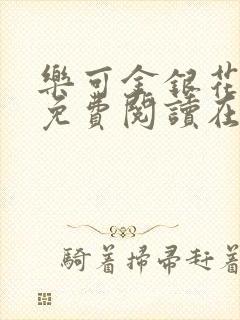 樂可金銀花
免費閱讀在
騎着掃帚赶着